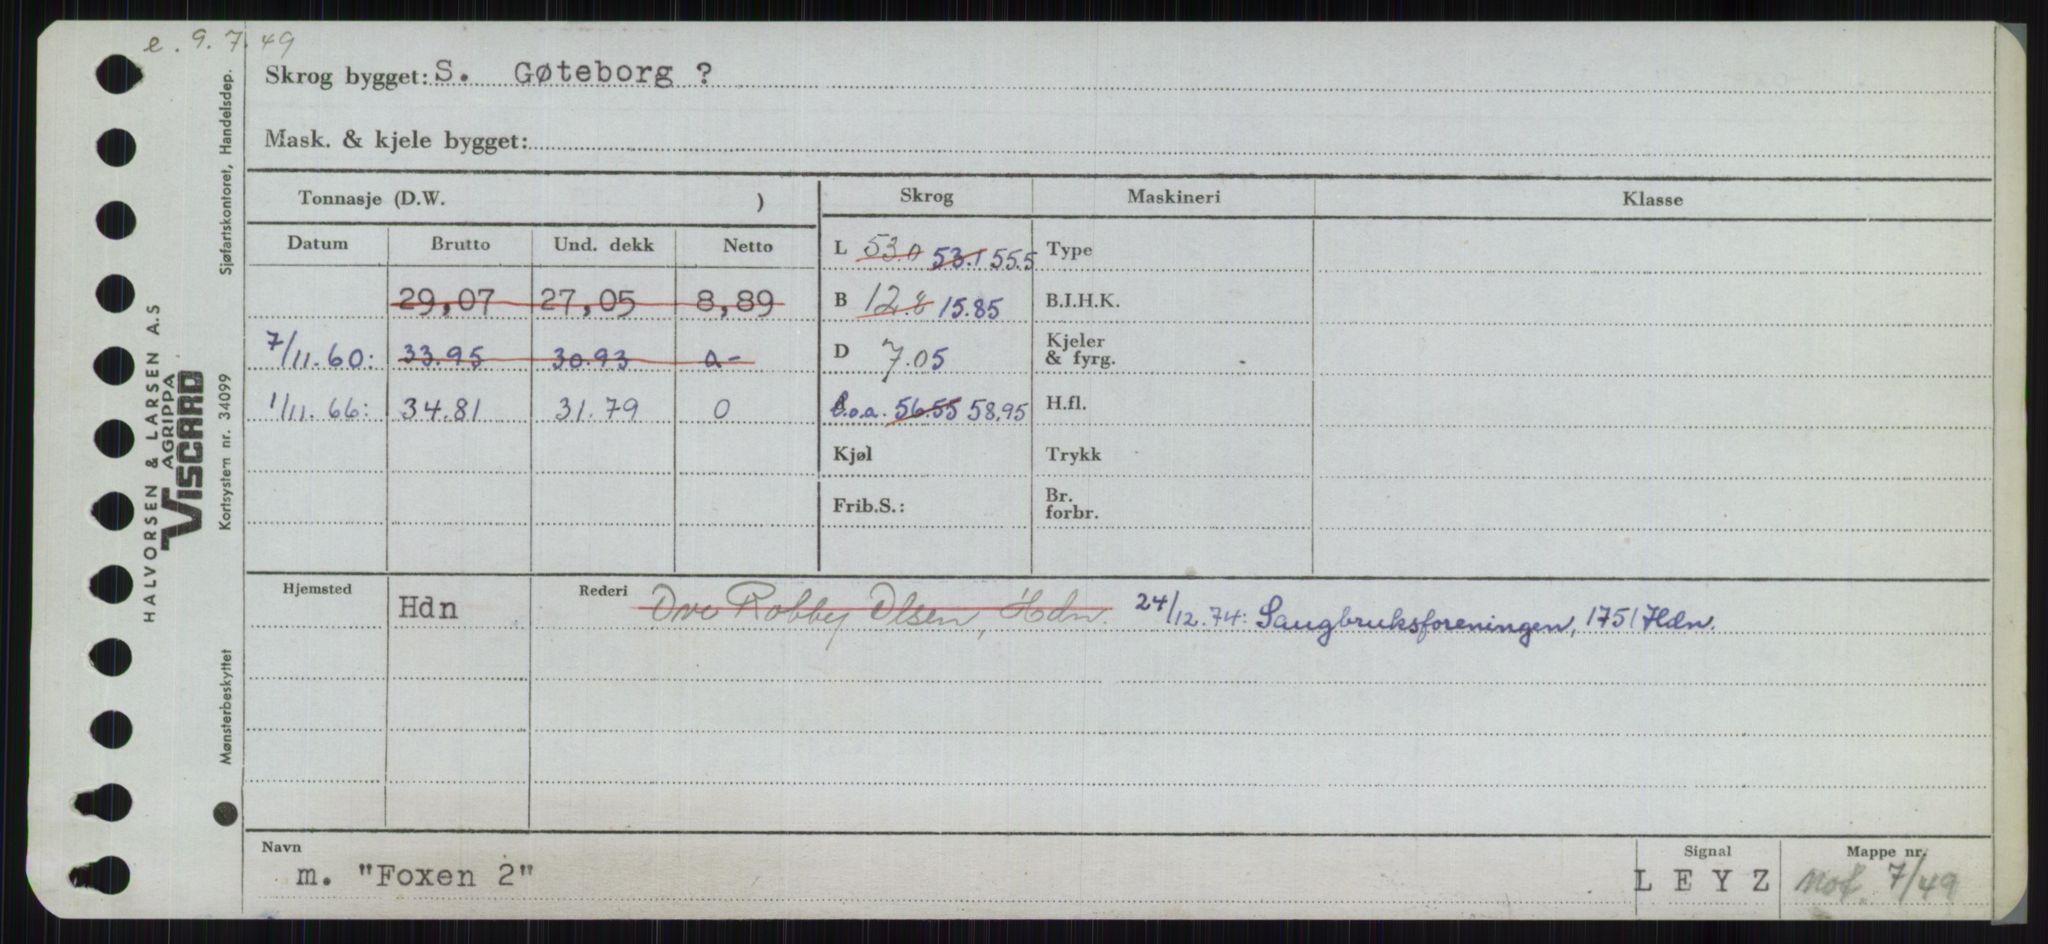 e. 9.7.49
Skrog bygget: S. Gøteborg ?
Mask. & kjele bygget:
Tonnasje (D.W. )
Skrog
Maskineri
Klasse
Datum Brutto Und. dekk Netto
29,07 27,05 8,89
7/11.60: 33.95 30.93 a-
1/11.66: 34.81 31.79 0
L 53.0 53.1 55.5
B 12.8 15.85
D 7.05
l.o.a. 56.55 58,95
Kjøl
Frib.S.:
Type
B.I.H.K.
Kjeler
& fyrg.
H.fl.
Trykk
Br.
forbr.
Hjemsted Hdn
Rederi Ove Robby Olsen, Hdn. 24/12.74: Saugbruksforeningen, 1751 Hdn.
Navn
m. "Foxen 2"
Signal
L E Y Z
Mappe nr.
7/49
Sjøfartskontoret, Handelsdep.
Kortsystem nr. 34099
Mønsterbeskyttet
HALVORSEN & LARSEN A.S
AGRIPPA
VISCARD